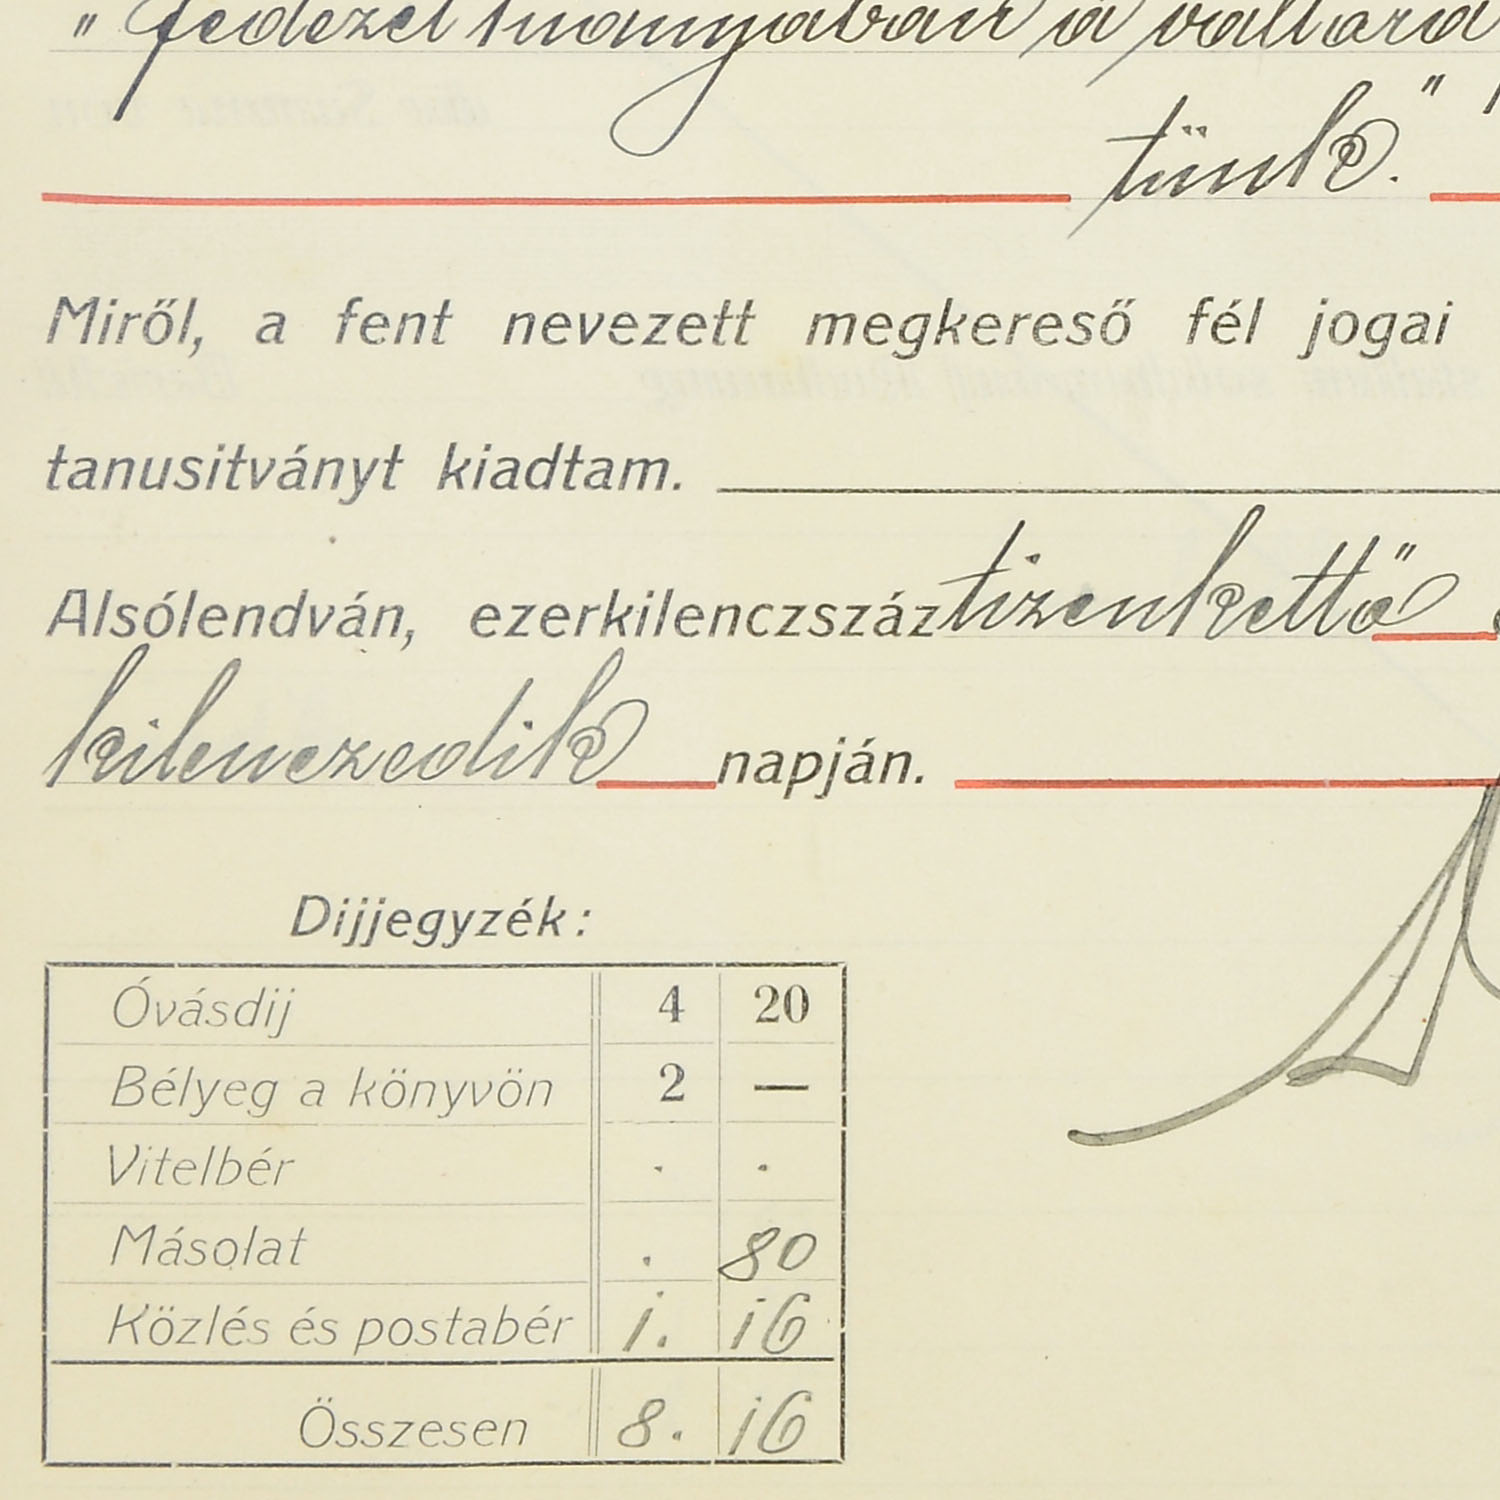 " fedezet hiányában a váltóra
tünk."
Miről, a fent nevezett megkereső fél jogai
tanusitványt kiadtam.
Alsólendván, ezerkilenczszáz tizenkettő
kilenczedik napján.
Dijjegyzék:
Óvásdij 4 20
Bélyeg a könyvön 2 —
Vitelbér . .
Másolat . 80
Közlés és postabér 1. 16
Összesen 8. 16